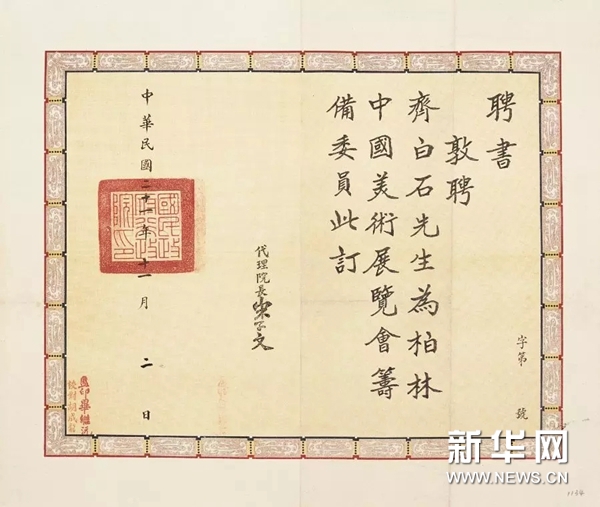 聘書
敦聘
齊白石先生為柏林
中國美術展覽會籌
備委員此訂
字第 號
代理院長宋子文
中華民國二十一年十一月二日
國民政
府行政
院印
監印
校對
新华网
WWW.NEWS.CN